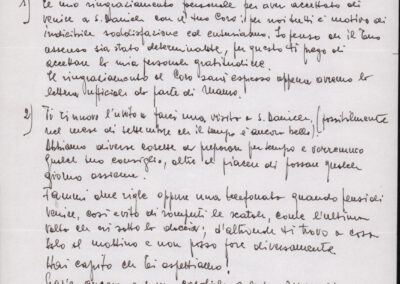 1) Il mio ringraziamento personale per aver accettato di
venire a S. Daniele con il tuo Coro: per noi tutti è motivo di
indicibile soddisfazione ed entusiasmo. Io penso che il Tuo
assenso sia stato determinante, per questo ti prego di
accettare la mia personale gratitudine.
Il ringraziamento al Coro sarà espresso appena avremo la
lettera ufficiale da parte di
2) Ti rinnovo l'invito a farci una visita a S. Daniele, (possibilmente
nel mese di settembre che il tempo è ancora bello).
Abbiamo diverse cosette da preparare per tempo e vorremmo
qualche tuo consiglio, oltre al piacere di passare qualche
giorno assieme.
Fammi due righe oppure una telefonata quando pensi di
venire, così evito di romperti le scatole, come l'ultima
volta che eri sotto la doccia; d'altronde ti trovo a casa
solo al mattino e non posso fare diversamente.
Hai capito che Ti aspettiamo!